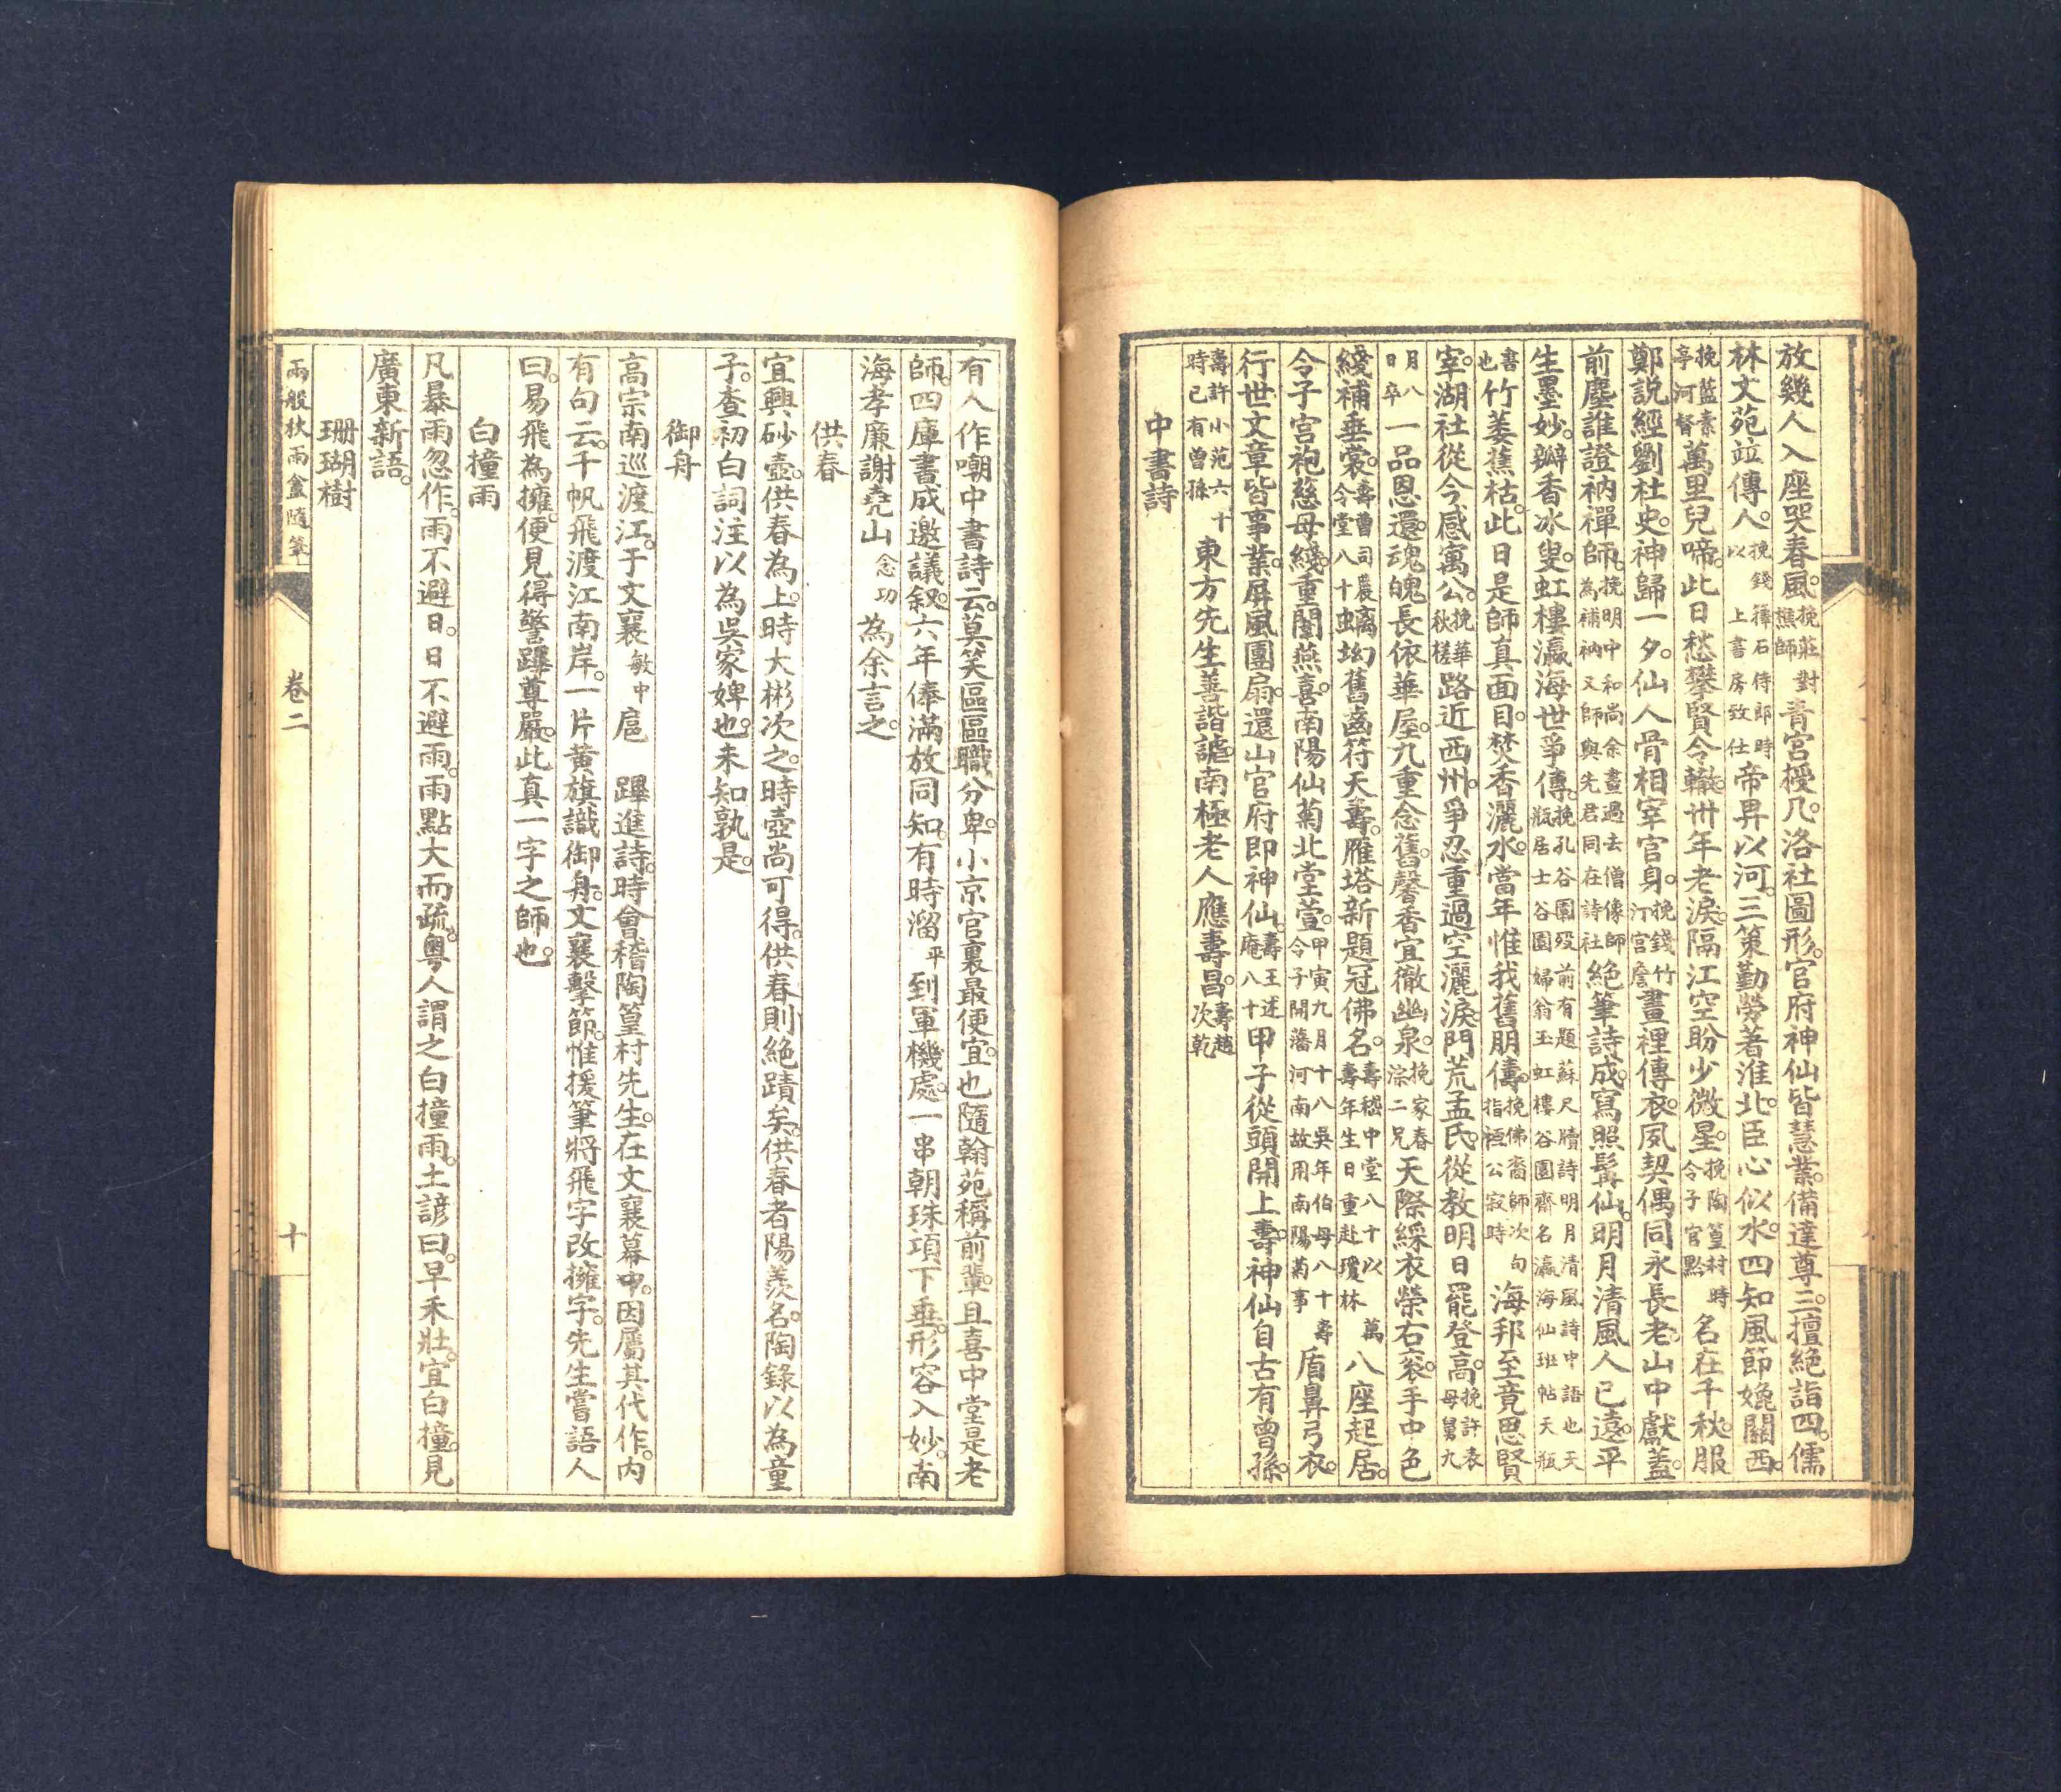 放幾人入座哭春風。挽莊樵師對青宮授几。洛社圖形。官府神仙皆慧業。備達尊三。擅絕詣四。儒
林文苑竝傳人。挽錢籜石侍郎時以上書房致仕帝畀以河。三策勤勞著淮北。臣心似水。四知風節媲關西。
挽藍素亭河督萬里兒啼。此日愁攀賢令轍。卅年老淚。隔江空盼少微星。挽陶篁村時令子官黔名在千秋。服
鄭說經劉杜史。神歸一夕。仙人骨相宰官身。挽錢竹汀宮詹畫裡傳衣。夙契偶同永長老。山中獻蓋。
前塵誰證衲禪師。挽明中和尚余畫過去僧像師為補衲又師與先君同在詩社絕筆詩成。寫照髯仙。明月清風人已遠。平
生墨妙。瓣香冰叟。虹樓瀛海世爭傳。挽孔谷園歿前有題蘇尺牘詩明月清風詩中語也天瓶居士谷園婦翁玉虹樓谷園齋名瀛海仙班帖天瓶
書也竹萎蕉枯。此日是師真面目。焚香灑水。當年惟我舊朋儔。挽佛裔師次句指恒公寂時海邦至竟思賢
宰。湖社從今感寓公。挽華秋槎路近西州。爭忍重過空灑淚。門荒孟氏。從教明日罷登高。挽許表母舅九
月八日卒一品恩還。魂魄長依華屋。九重念舊。馨香宜徹幽泉。挽家春淙二兄天際綵衣榮右衮。手中色
綫補垂裳。壽曹司農令堂八十螭坳舊齒符天壽。雁塔新題冠佛名。壽嵇中堂八十以萬壽年生日重赴瓊林八座起居。
令子宮袍慈母綫。重闈燕喜。南陽仙菊北堂萱。甲寅九月十八吳年伯母八十壽令子開藩河南故用南陽菊事盾鼻弓衣。
行世文章皆事業。屏風團扇。還山官府即神仙。壽王述庵八十甲子從頭開上壽。神仙自古有曾孫。
壽許小范六十時已有曾孫東方先生善諧謔。南極老人應壽昌。壽趙次乾
中書詩
有人作嘲中書詩云。莫笑區區職分卑。小京官裏最便宜。也隨翰苑稱前輩。且喜中堂是老
師。四庫書成邀議敘。六年俸滿放同知。有時溜平到軍機處。一串朝珠項下垂。形容入妙。南
海孝廉謝堯山念功為余言之。
供春
宜興砂壺。供春為上。時大彬次之。時壺尚可得。供春則絕蹟矣。供春者陽羨名。陶錄以為童
子。查初白詞注以為吳家婢也。未知孰是。
御舟
高宗南巡渡江。于文襄敏中扈 蹕進詩。時會稽陶篁村先生。在文襄幕中。因屬其代作。內
有句云。千帆飛渡江南岸。一片黃旗識御舟。文襄擊節。惟援筆將飛字改擁字。先生嘗語人
曰。易飛為擁。便見得警蹕尊嚴。此真一字之師也。
白撞雨
凡暴雨忽作。雨不避日。日不避雨。雨點大而疏。粵人謂之白撞雨。土諺曰。早禾壯。宜白撞。見
廣東新語。
珊瑚樹
兩般秋雨盦隨筆
卷二
十